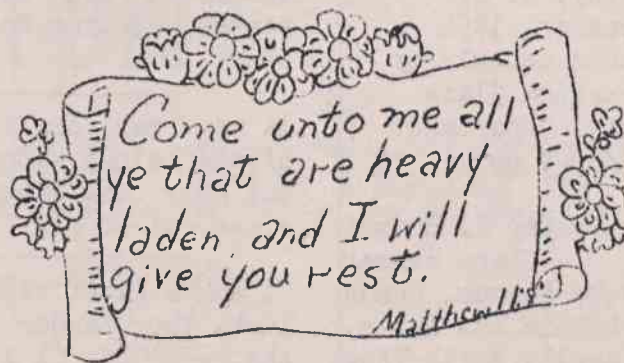 Come unto me all
ye that are heavy
laden, and I will
give you rest.
Matthew